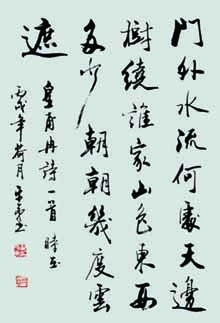 門外水流何處天邊
樹繞誰家山色東西
多少朝朝幾度雲
遮 皇甫冉詩一首 時在
丙戌年荷月